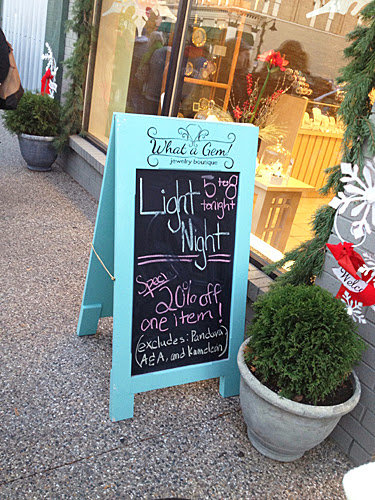 What a Gem!
jewelry boutique
Light 5 to 8
tonight
Night
Special
20% off
one item!
(excludes: Pandora,
A&A, and Kameleon)
Welcome